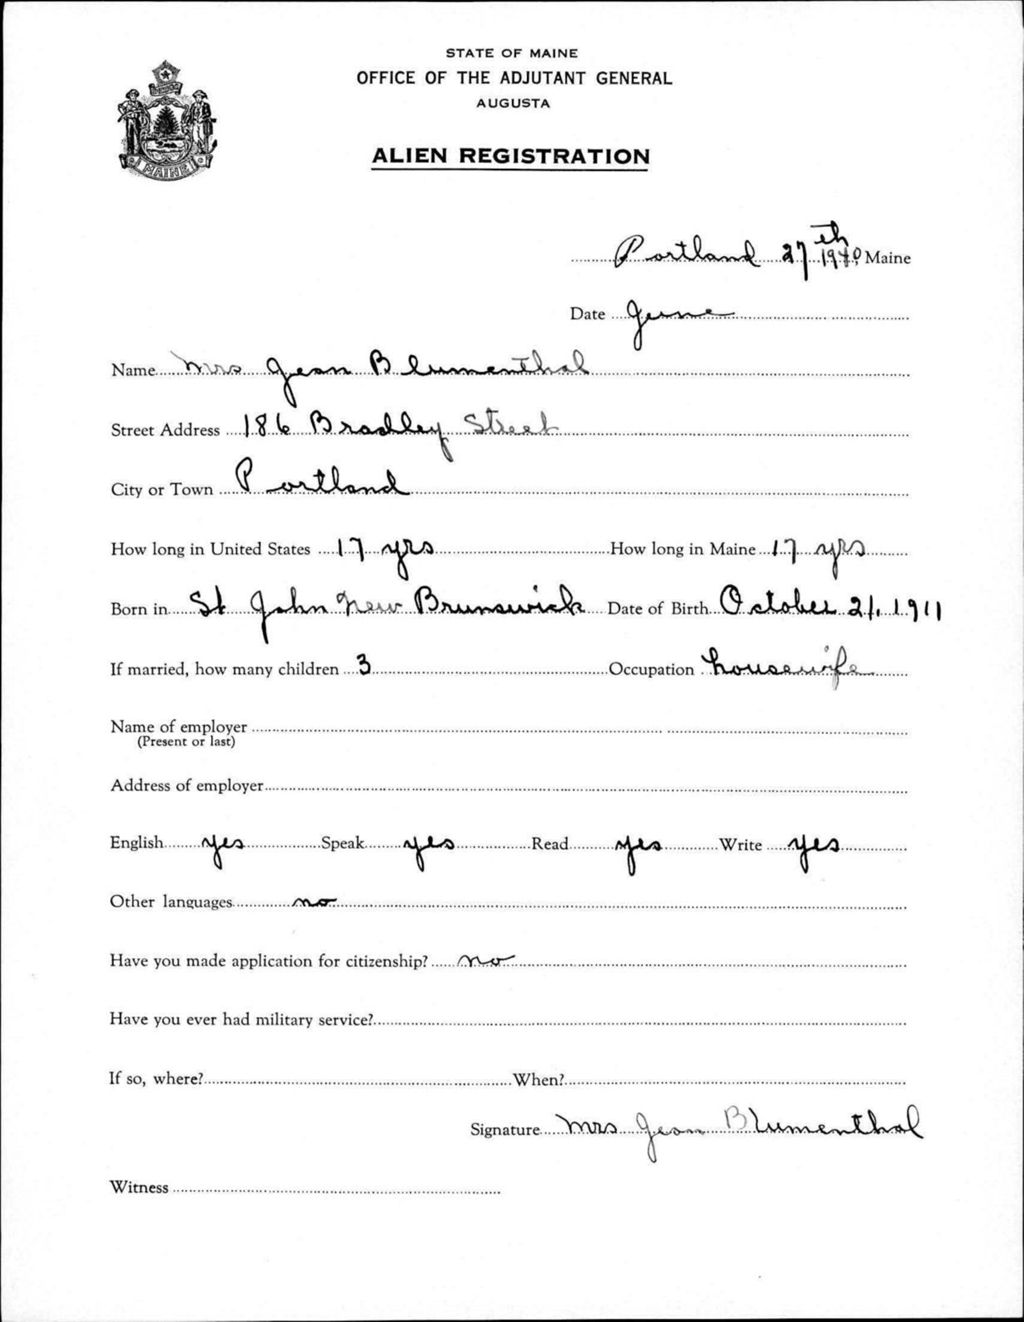 STATE OF MAINE
OFFICE OF THE ADJUTANT GENERAL
AUGUSTA
ALIEN REGISTRATION
MAINE
Portland 27th 1940 Maine
Date June
Name Mrs Jean Blumenthal
Street Address 186 Bradley Street
City or Town Portland
How long in United States 17 yrs How long in Maine 17 yrs
Born in St John New Brunswick Date of Birth October 21, 1911
If married, how many children 3 Occupation housewife
Name of employer
(Present or last)
Address of employer
English yes Speak yes Read yes Write yes
Other languages no
Have you made application for citizenship? no
Have you ever had military service?
If so, where? When?
Signature Mrs Jean Blumenthal
Witness